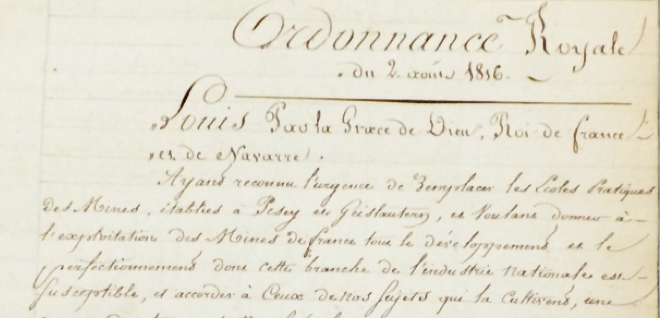 Ordonnance Royale
du 2. août 1816.
Louis Par la Grace de Dieu, Roi de france
et de Navarre.
Ayant reconnu l'urgence de Remplacer les Ecoles Pratiques
Des Mines, établies à Pesey et Geislautern, et Voulant donner à
l'exploitation des Mines de france tout le développement et le
perfectionnement dont cette branche de l'industrie Nationale est
Susceptible, et accorder à Ceux de nos Sujets qui la Cultivent, une